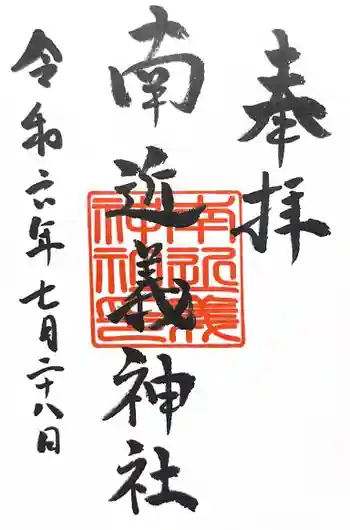 奉拝
南近義神社
南近義神社印
令和六年七月二十八日